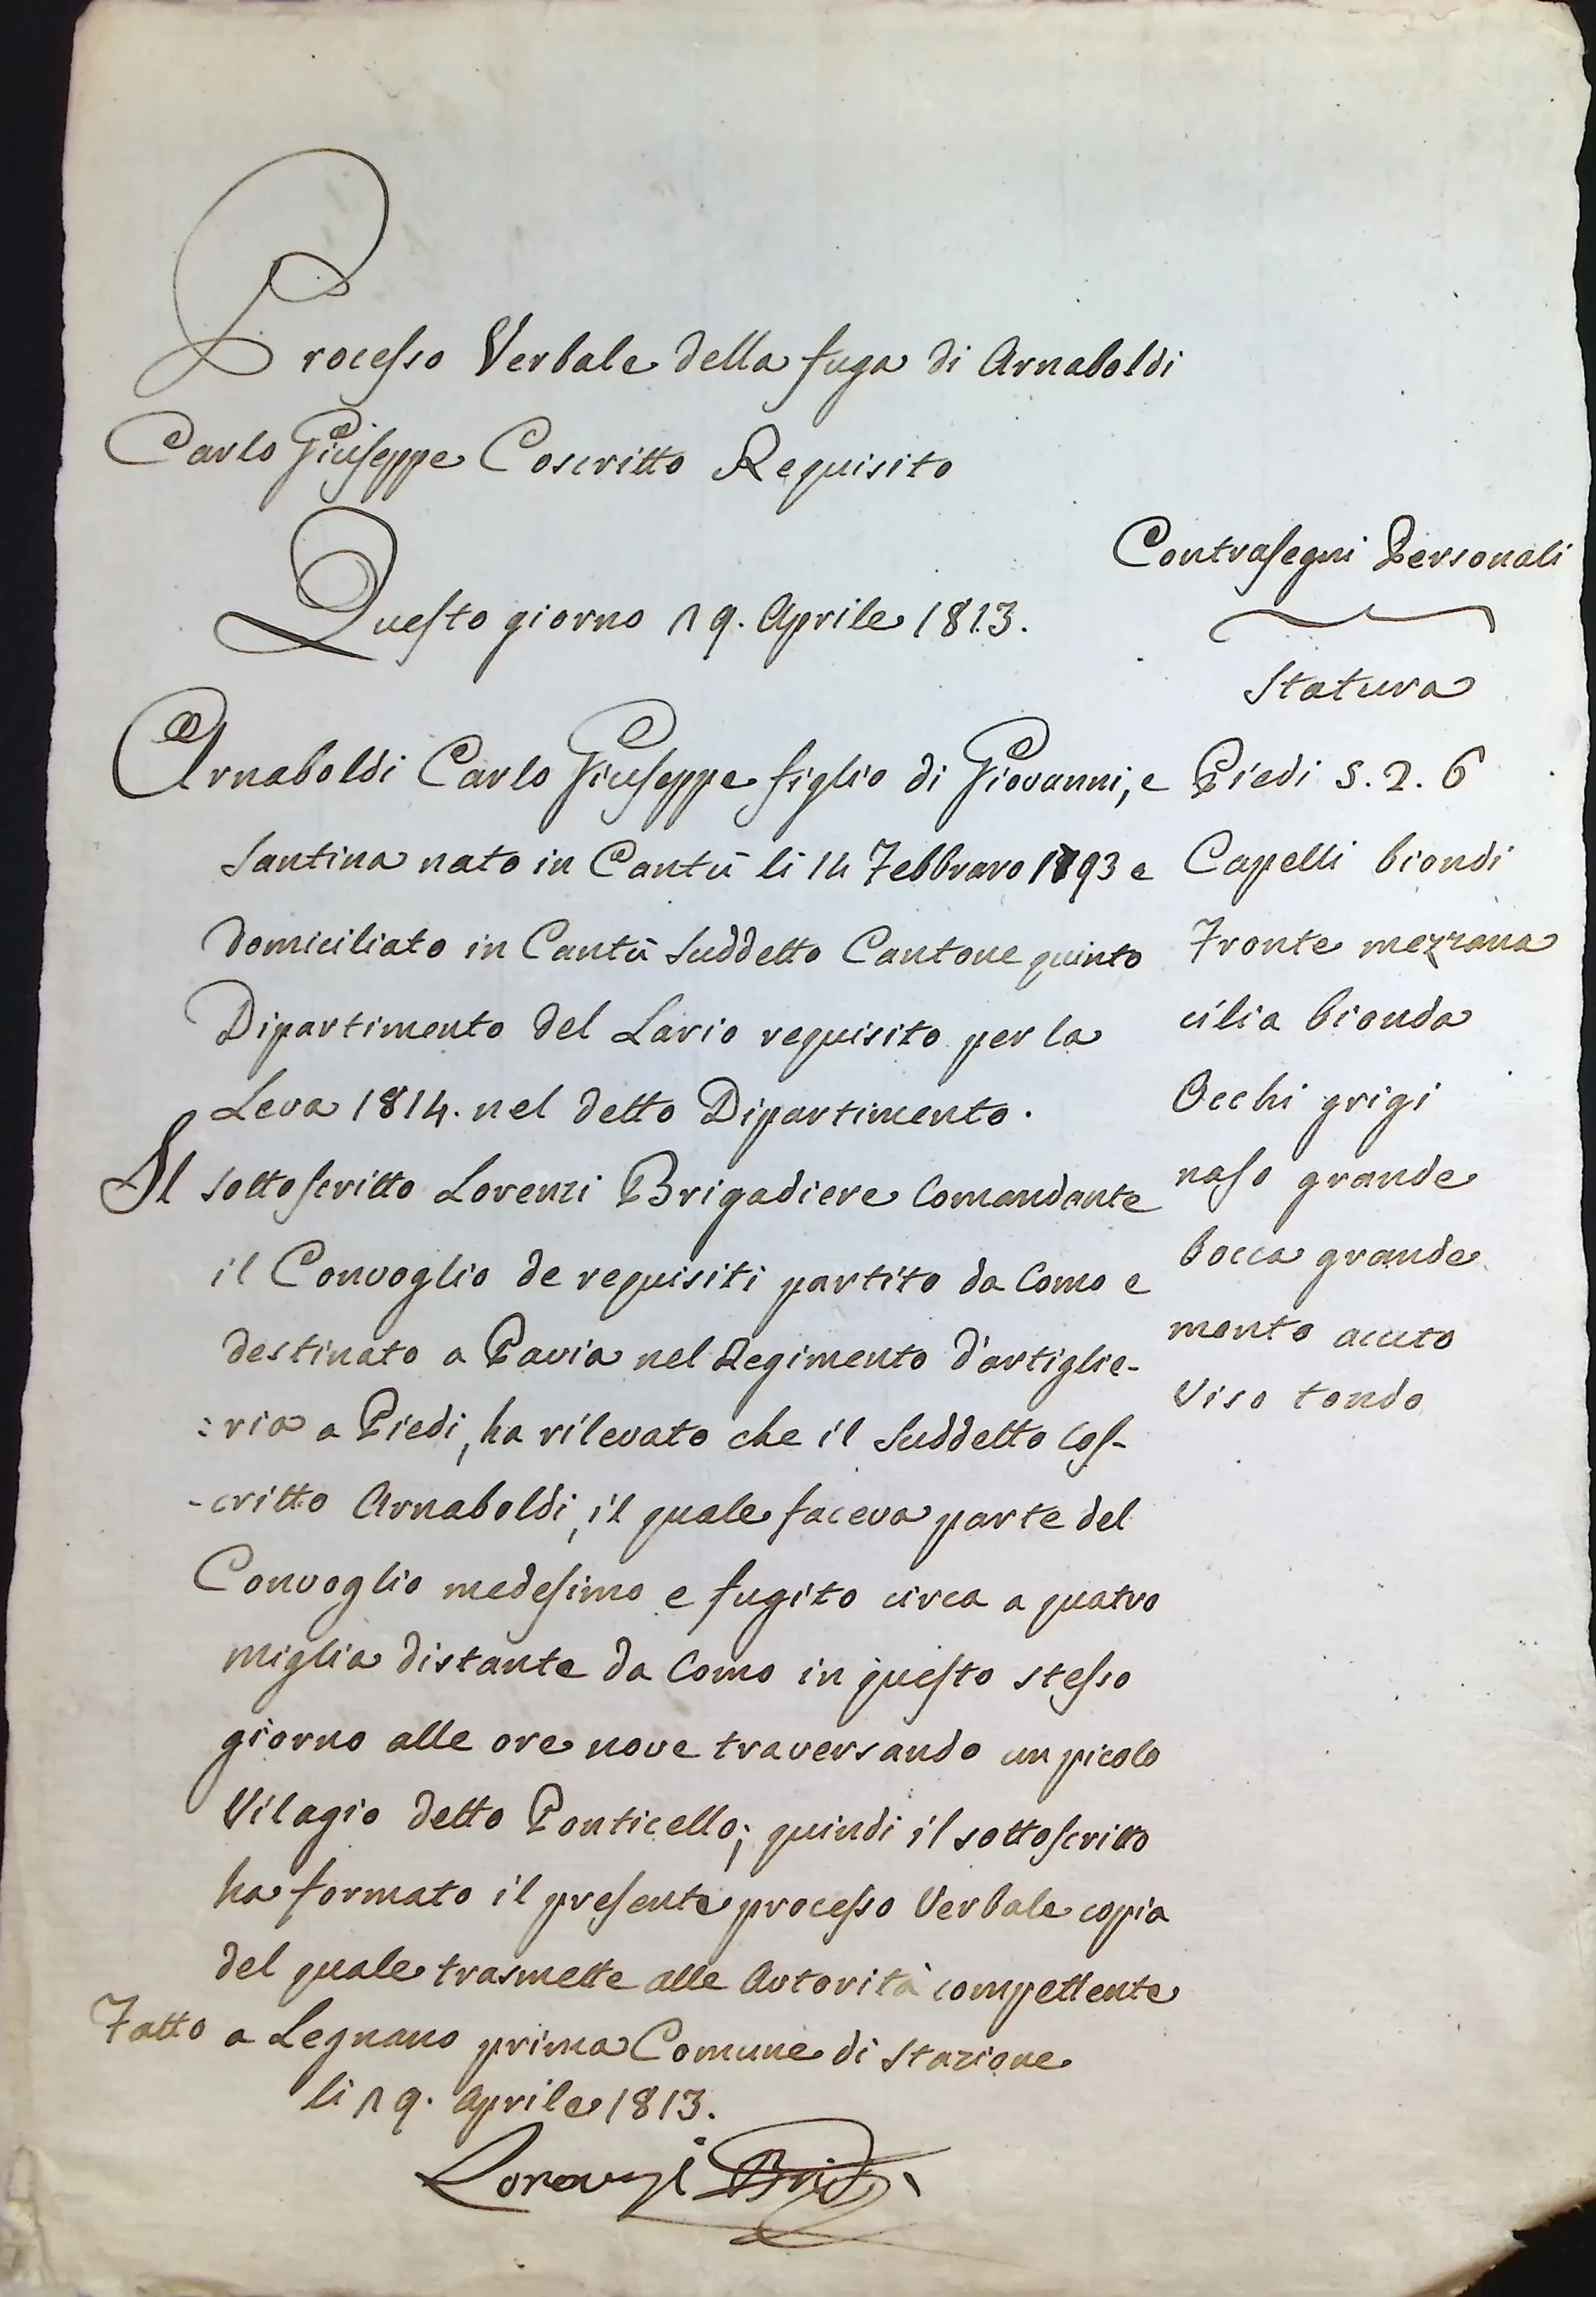 Processo Verbale della fuga di Arnaboldi
Carlo Giuseppe Coscritto Requisito
Questo giorno 19. Aprile 1813.
Arnaboldi Carlo Giuseppe figlio di Giovanni, e
Santina nato in Cantù li 14 Febbraro 1793 e
domiciliato in Cantù Suddetto Cantone quinto
Dipartimento del Lario requisito per la
Leva 1814. nel detto Dipartimento.
Il sottoscritto Lorenzi Brigadiere Comandante
il Convoglio de requisiti partito da Como e
destinato a Pavia nel Regimento d'artiglie-
:ria a Piedi, ha rilevato che il Suddetto Cos-
-critto Arnaboldi, il quale faceva parte del
Convoglio medesimo e fugito circa a quatro
miglia distante da Como in questo stesso
giorno alle ore nove traversando un picolo
Vilagio detto Ponticello; quindi il sottoscritto
ha formato il presente processo Verbale copia
del quale trasmette alle Autorità compettente
Fatto a Legnano prima Comune di Stazione
li 19. Aprile 1813.
Lorenzi Brig.
Contrasegni Personali
Statura
Piedi 5. 2. 6
Capelli biondi
Fronte mezzana
cilia bionda
Occhi grigi
naso grande
bocca grande
mento acuto
Viso tondo